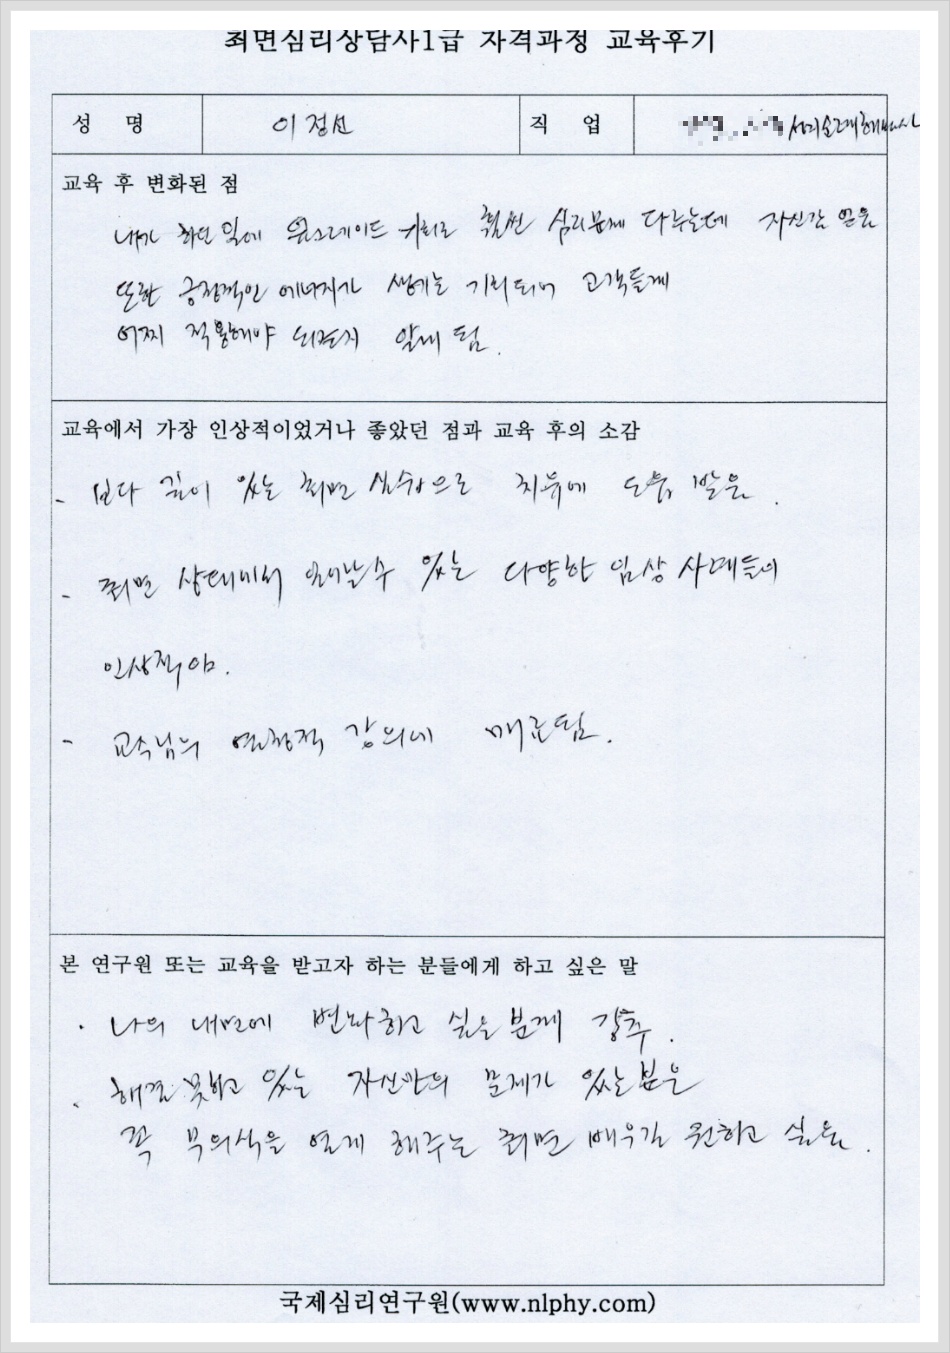 최면심리상담사1급 자격과정 교육후기
성 명 이정선 직 업
교육 후 변화된 점
내가 하던 일에 업그레이드 기회로 훨씬 심리문제 다루는데 자신감 얻음
또한 긍정적인 에너지가 생기는 기회되어 고객들께
어찌 적용해야 되는지 알게 됨.
교육에서 가장 인상적이었거나 좋았던 점과 교육 후의 소감
- 보다 깊이 있는 최면 실습으로 치유에 도움 받음.
- 최면 상태에서 일어날수 있는 다양한 임상 사례들이
인상적임.
- 교수님의 열정적 강의에 매료됨.
본 연구원 또는 교육을 받고자 하는 분들에게 하고 싶은 말
· 나의 내면에 변화하고 싶은 분께 강추.
· 해결 못하고 있는 자신만의 문제가 있는 분은
꼭 무의식을 열게 해주는 최면 배우길 권하고 싶음.
국제심리연구원(www.nlphy.com)